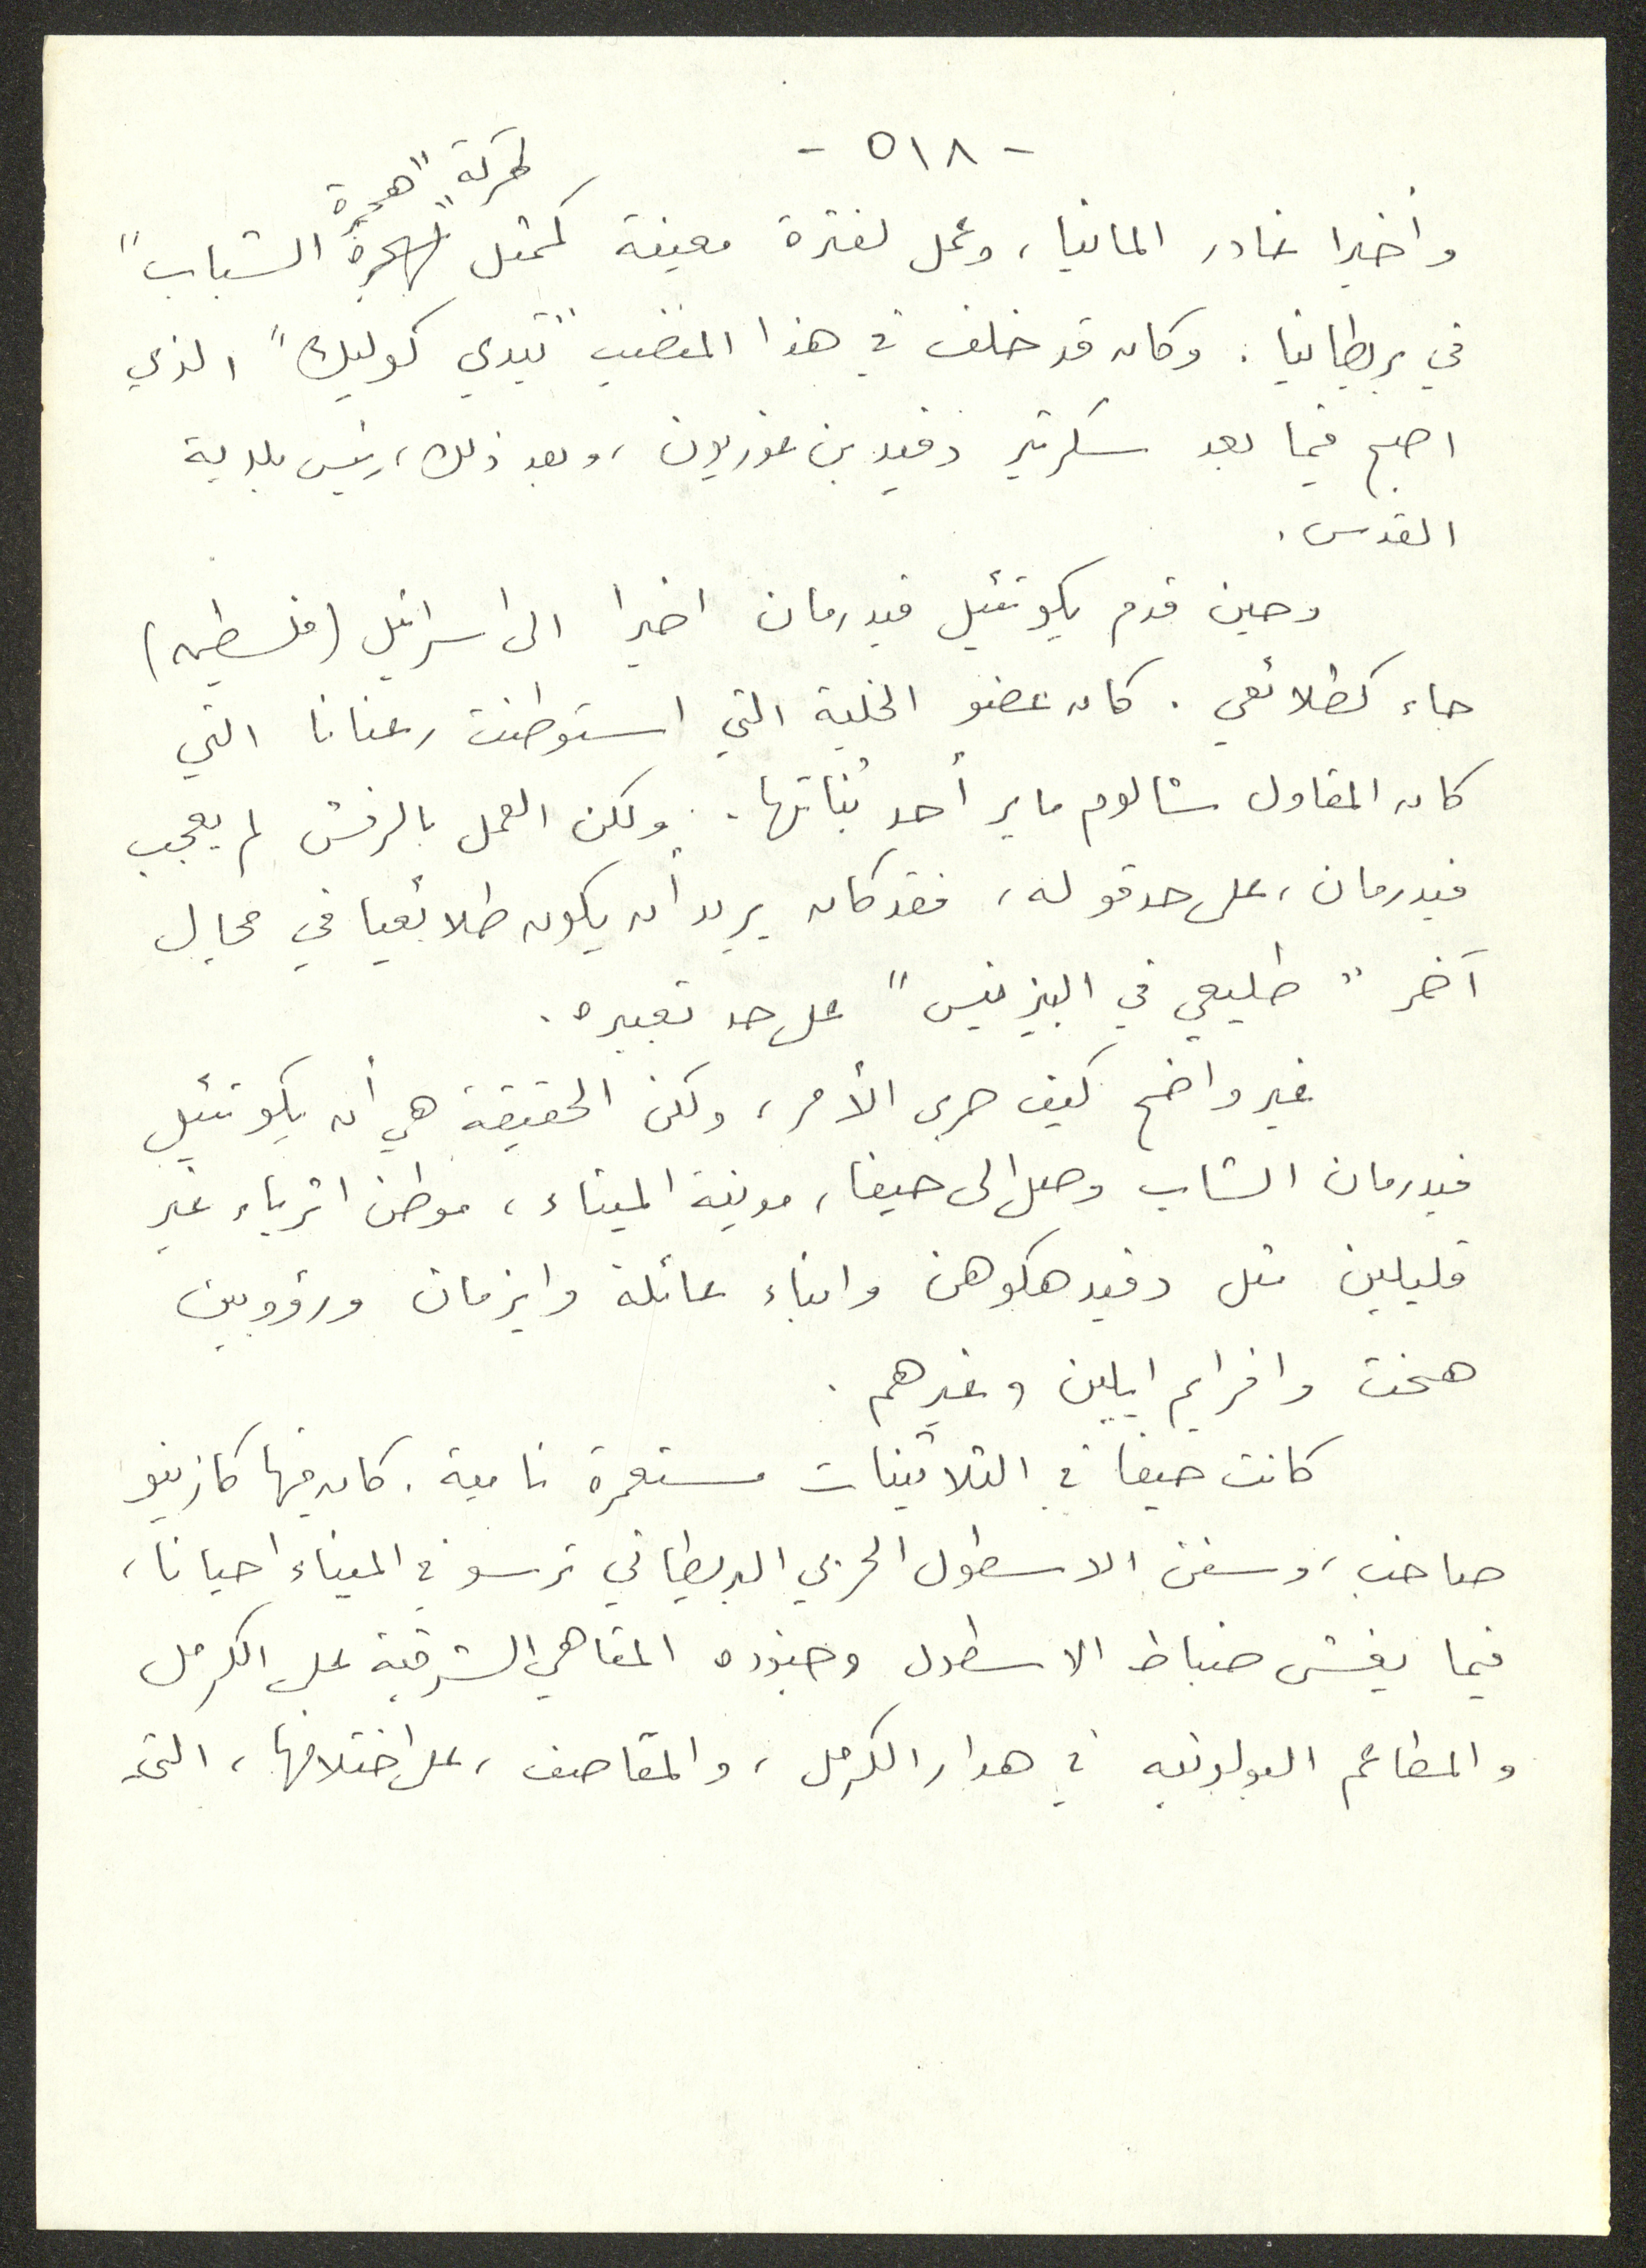 - ٥١٨ -
لحركة "هجرة
وأخيرا غادر المانيا، وعمل لفترة معينة كممثل الشباب"
في بريطانيا. وكان قد خلف في هذا المنصب "تيدي كوليك" الذي
اصبح فيما بعد سكرتير دفيد بن غوريون، وبعد ذلك، رئيس بلدية
القدس.
وحين قدم يكوتئيل فيدرمان اخيرا الى اسرائيل (فلسطين)
جاء كطلائعي. كان عضو الخلية التي استوطنت رعنانا التي
كان المقاول شالوم ماير أحد بُناتها. ولكن العمل بالرفش لم يعجب
فيدرمان، على حد قوله، فقد كان يريد أن يكون طلائعيا في مجال
آخر "طليعي في البيزنيس" على حد تعبيره.
غير واضح كيف جرى الأمر، ولكن الحقيقة هي أن يكوتئيل
فيدرمان الشاب وصل الى حيفا، مدينة الميناء، موطن اثرياء غير
قليلين مثل دفيد هكوهن وابناء عائلة وايزمان ورؤوبين
هخت وافرايم ايلين وغيرهم.
كانت حيفا في الثلاثينات مستعمرة نامية. كان فيها كازينو
صاخب، وسفن الاسطول الحربي البريطاني ترسو في الميناء احيانا،
فيما يغشى ضباط الاسطول وجنوده المقاهي الشرقية على الكرمل
والمطاعم البولونية في هدار الكرمل، والمقاصف، على اختلافها، التي